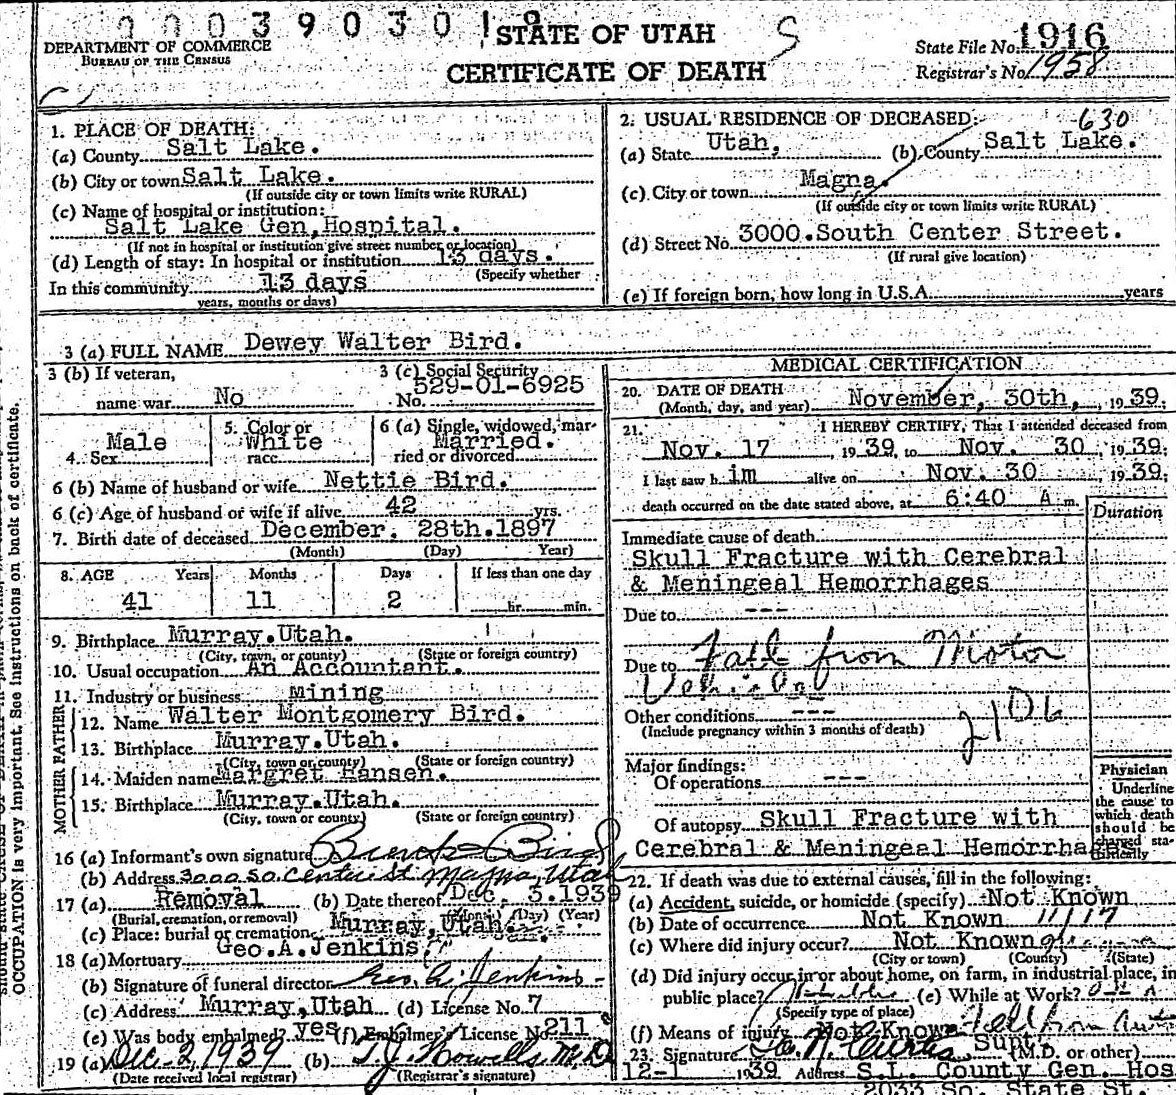 00039030 19
STATE OF UTAH
DEPARTMENT OF COMMERCE
BUREAU OF THE CENSUS
CERTIFICATE OF DEATH
State File No. 1916
Registrar's No. 1958
1. PLACE OF DEATH:
(a) County Salt Lake.
(b) City or town Salt Lake.
(If outside city or town limits write RURAL)
(c) Name of hospital or institution:
Salt Lake Gen. Hospital.
(If not in hospital or institution give street number or location)
(d) Length of stay: In hospital or institution 13 days.
(Specify whether
In this community 13 days
years, months or days)
2. USUAL RESIDENCE OF DECEASED: 630
(a) State Utah, (b) County Salt Lake.
(c) City or town Magna.
(If outside city or town limits write RURAL)
(d) Street No. 3000.South Center Street.
(If rural give location)
(e) If foreign born, how long in U.S.A. years
3 (a) FULL NAME Dewey Walter Bird.
3 (b) If veteran,
name war No
3 (c) Social Security
No. 529-01-6925
4. Sex Male
5. Color or
race White
6 (a) Single, widowed, mar-
ried or divorced Married.
6 (b) Name of husband or wife Nettie Bird.
6 (c) Age of husband or wife if alive 42 yrs.
7. Birth date of deceased December. 28th.1897
(Month) (Day) Year)
8. AGE Years Months Days If less than one day
41 11 2 hr. min.
9. Birthplace Murray.Utah.
(City, town, or county) (State or foreign country)
10. Usual occupation An Accountant.
11. Industry or business Mining
FATHER
12. Name Walter Montgomery Bird.
13. Birthplace Murray.Utah.
(City, town or county) (State or foreign country)
MOTHER
14. Maiden name Margret Hansen.
15. Birthplace Murray.Utah.
(City, town or county) (State or foreign country)
16 (a) Informant's own signature Bird
(b) Address 3000 So. Center St Magna, Utah
17 (a) Removal (b) Date thereof Dec. 3.1939
(Burial, cremation, or removal) (Month) (Day) (Year)
(c) Place: burial or cremation Murray, Utah.
18 (a) Mortuary Geo.A.Jenkins
(b) Signature of funeral director Geo. A. Jenkins
(c) Address Murray,Utah (d) License No. 7
(e) Was body embalmed? yes (f) Embalmer's License No. 211
19 (a) Dec-2, 1939 (b) T.J. Howells, M.D.
(Date received local registrar) (Registrar's signature)
MEDICAL CERTIFICATION
20. DATE OF DEATH
(Month, day, and year) November, 30th, 1939.
21. I HEREBY CERTIFY, That I attended deceased from
Nov. 17, 1939, to Nov. 30, 1939;
I last saw him alive on Nov. 30 1939;
death occurred on the date stated above, at 6:40 A m.
Duration
Immediate cause of death
Skull Fracture with Cerebral
& Meningeal Hemorrhages
Due to ---
Due to Fall from Motor
Vehicle
Other conditions ---
(Include pregnancy within 3 months of death)
210b
Major findings:
Of operations ---
Of autopsy Skull Fracture with
Cerebral & Meningeal Hemorrha
Physician
Underline
the cause to
which death
should be
charged sta-
tistically
22. If death was due to external causes, fill in the following:
(a) Accident, suicide, or homicide (specify) Not Known
(b) Date of occurrence Not Known 11/17
(c) Where did injury occur? Not Known
(City or town) (County) (State)
(d) Did injury occur in or about home, on farm, in industrial place, in
public place? (e) While at Work?
(Specify type of place)
(f) Means of injury Not Known fell from auto
23. Signature Curtis Supt. (M.D. or other)
12-1 1939 Address S.L. County Gen. Hos
2033 So. State St.
OCCUPATION is very important. See instructions on back of certificate.